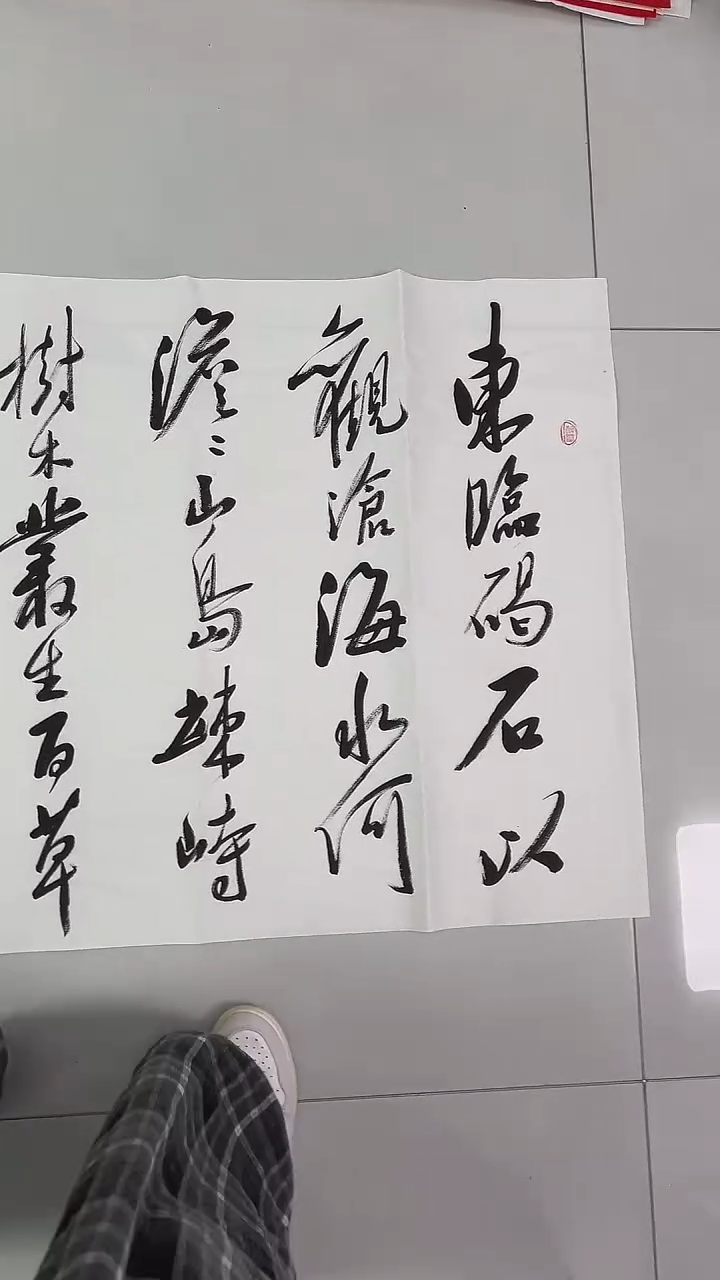 東臨碣石以
觀滄海水何
澹〻山島竦峙
樹木叢生百草